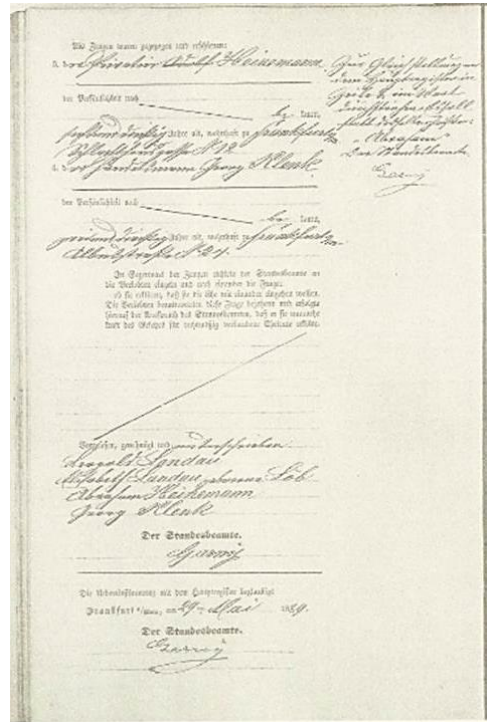 Als Zeugen waren zugezogen und erschienen:
3. der Privatier Adolf Heinemann,
der Persönlichkeit nach
be kannt,
siebenunddreißig Jahre alt, wohnhaft zu Frankfurt a/M
N 12
4. der Handelsmann Georg Klenk
der Persönlichkeit nach
be kannt,
zweiunddreißig Jahre alt, wohnhaft zu Frankfurt a/M
N 24.
In Gegenwart der Zeugen richtete der Standesbeamte an
die Verlobten einzeln und nach einander die Frage:
ob sie erklären, daß sie die Ehe mit einander eingehen wollen.
Die Verlobten beantworteten diese Frage bejahend und erfolgte
hierauf der Ausspruch des Standesbeamten, daß er sie nunmehr
kraft des Gesetzes für rechtmäßig verbundene Eheleute erkläre.
Vorgelesen, genehmigt und unterschrieben
Leopold Landau
Elisabeth Landau geborene Löb
Abraham Heinemann
Georg Klenk
Der Standesbeamte.
Die Uebereinstimmung mit dem Hauptregister beglaubigt
Frankfurt a/Main, am 29ten Mai 1889.
Der Standesbeamte.
Zur Gleichstellung mit
dem Hauptregister in
Zeile 2 im Wort
durchstrichen Adolf
statt dessen
"Abraham"
Der Standesbeamte